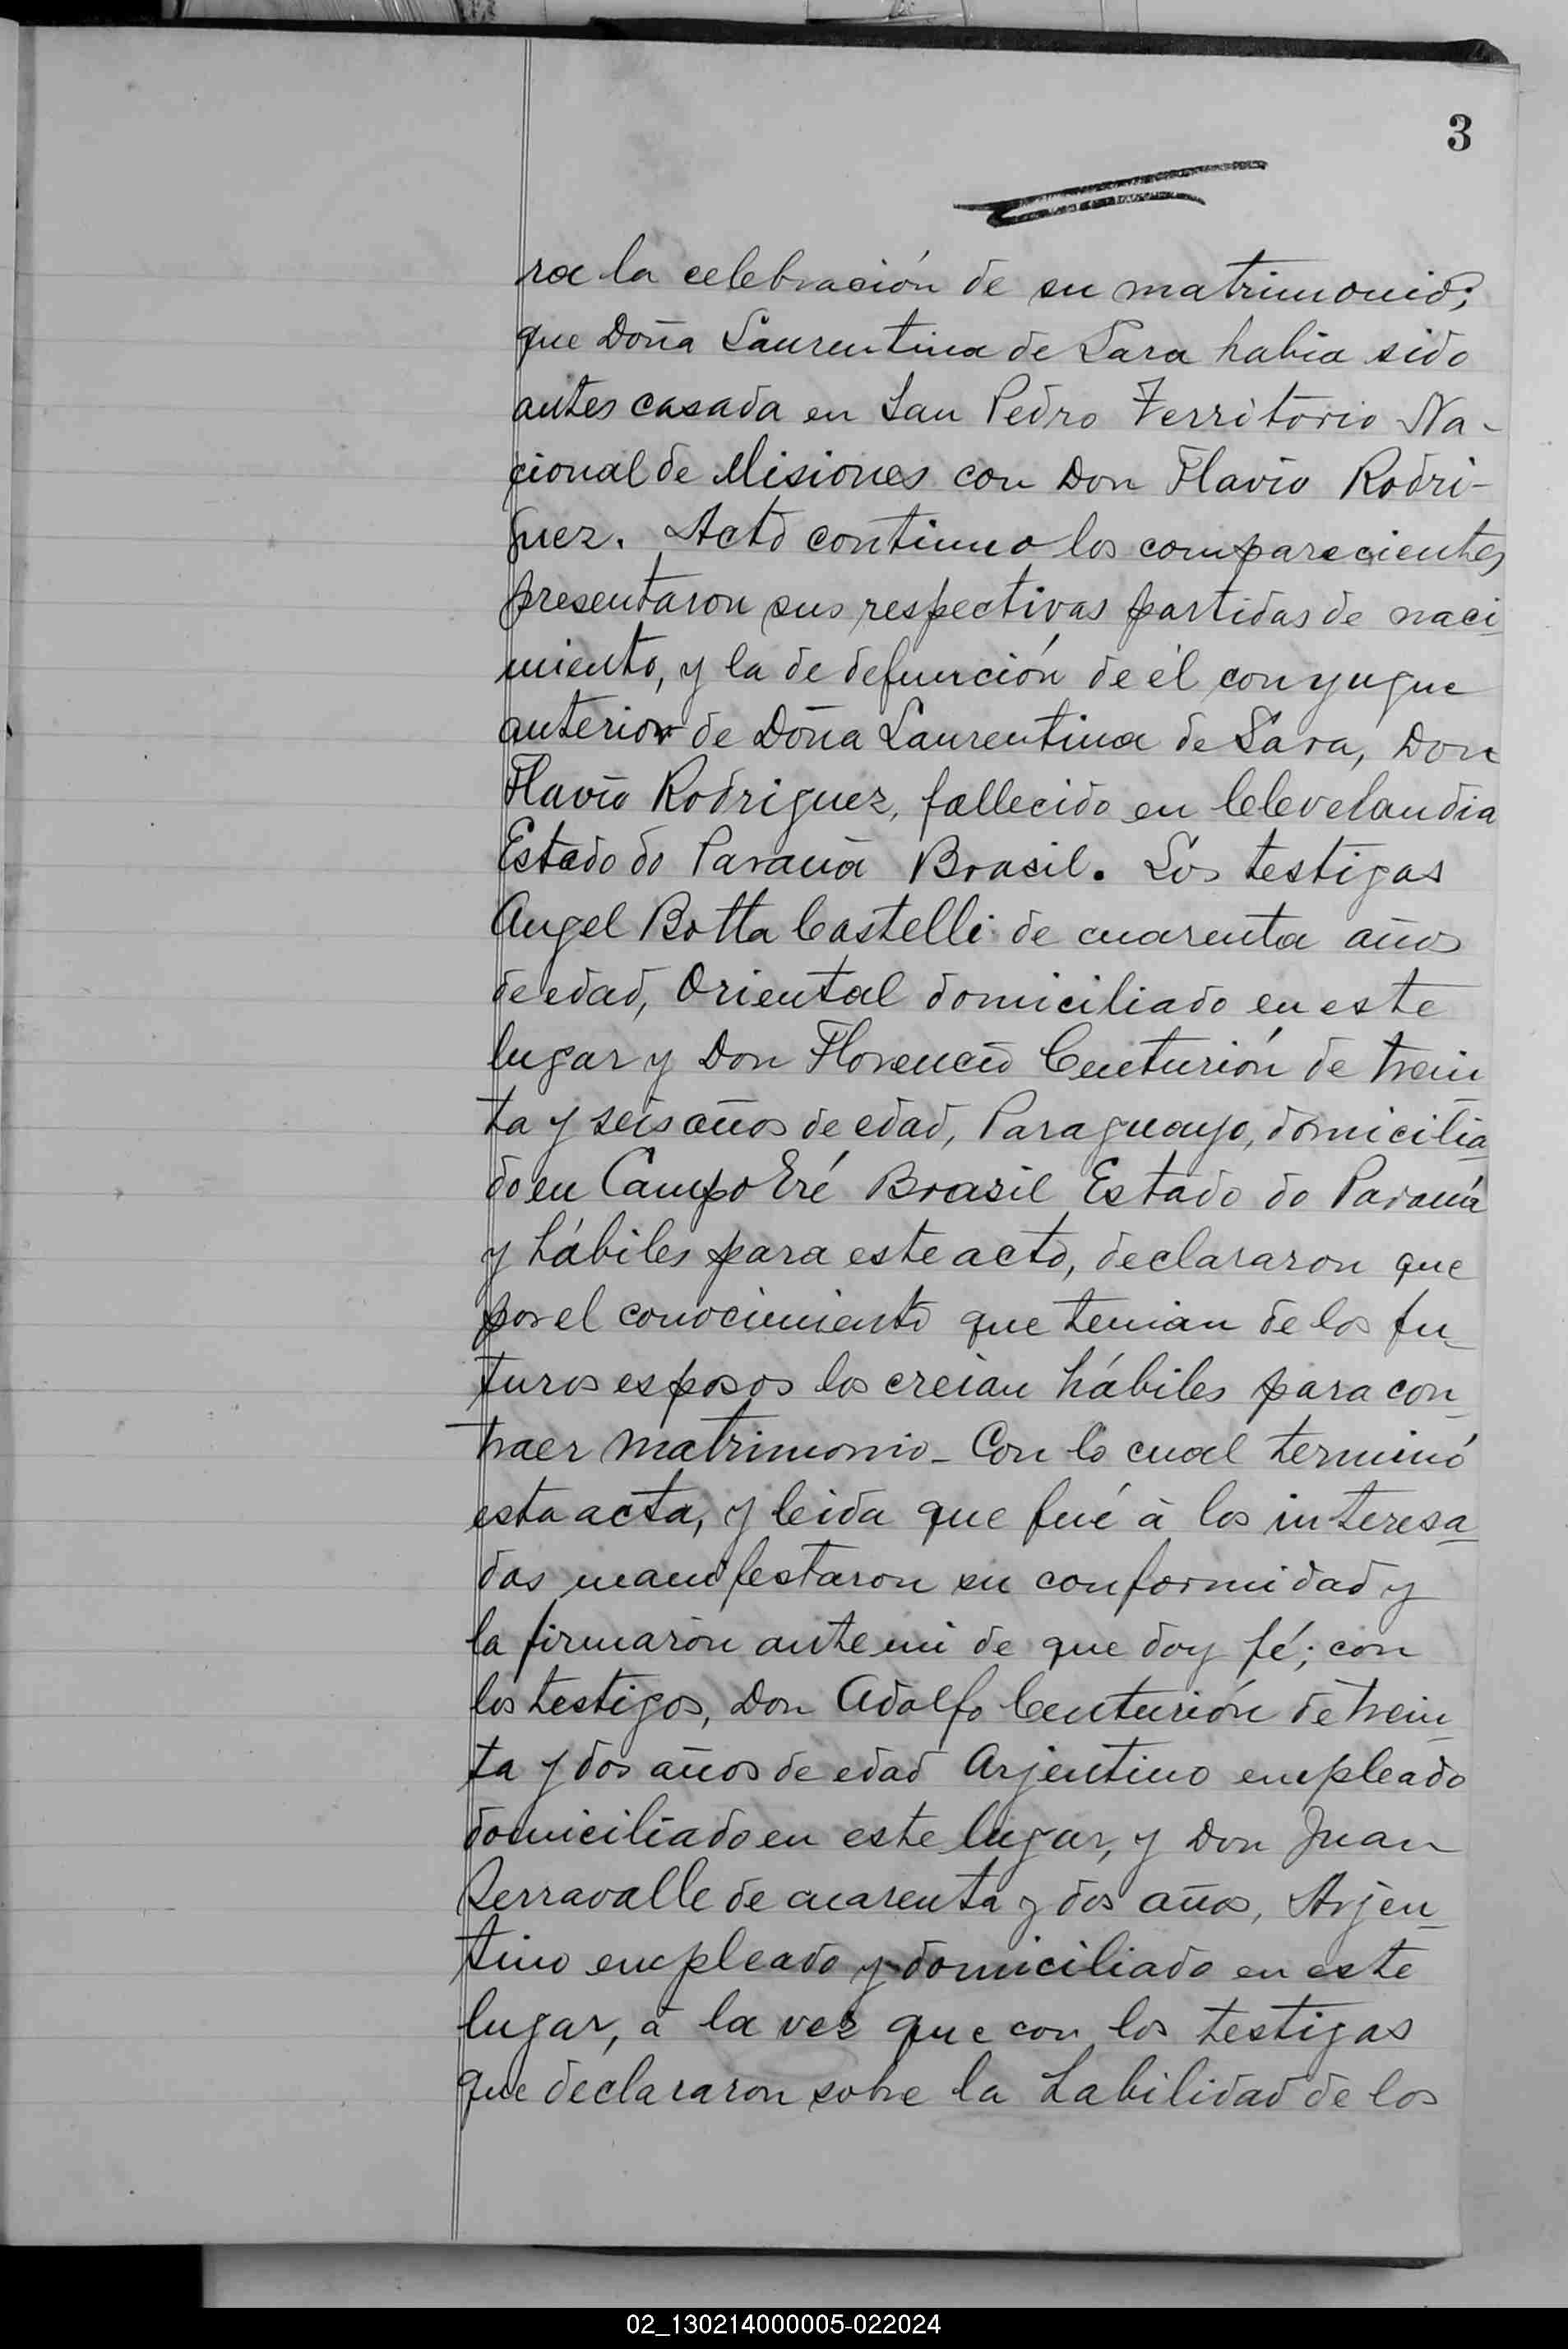 3
ra la celebración de su matrimonio;
que Doña Laurentina de Lara habia sido
antes casada en San Pedro Territorio Na-
cional de Misiones con Don Flavio Rodri-
guez. Acto continuo los comparecientes
presentaron sus respectivas partidas de naci
miento, y la de defunción de él conyugue
anterior de Doña Laurentina de Lara, Don
Flavio Rodriguez, fallecido en Clevelandia
Estado do Paraná Brasil. Los testigos
Angel Botta Castelli de cuarenta años
de edad, Oriental domiciliado en este
lugar y Don Florencio Centurión de trein
ta y seis años de edad, Paraguayo, domicilia
do en Campo Eré Brasil Estado do Paraná
y hábiles para este acto, declararon que
por el conocimiento que tenian de los fu_
turos esposos los creian hábiles para con_
traer matrimonio_ Con lo cual terminó
esta acta, y leida que fué á los interesa
dos manifestaron su conformidad y
la firmarón ante mi de que doy fé; con
los testigos, Don Adolfo Centurión de trein
ta y dos años de edad Arjentino empleado
domiciliado en este lugar, y Don Juan
Serravalle de cuarenta y dos años, Arjen_
tino empleado y domiciliado en este
lugar, á la vez que con los testigos
que declararon sobre la habilidad de los
02_130214000005-022024